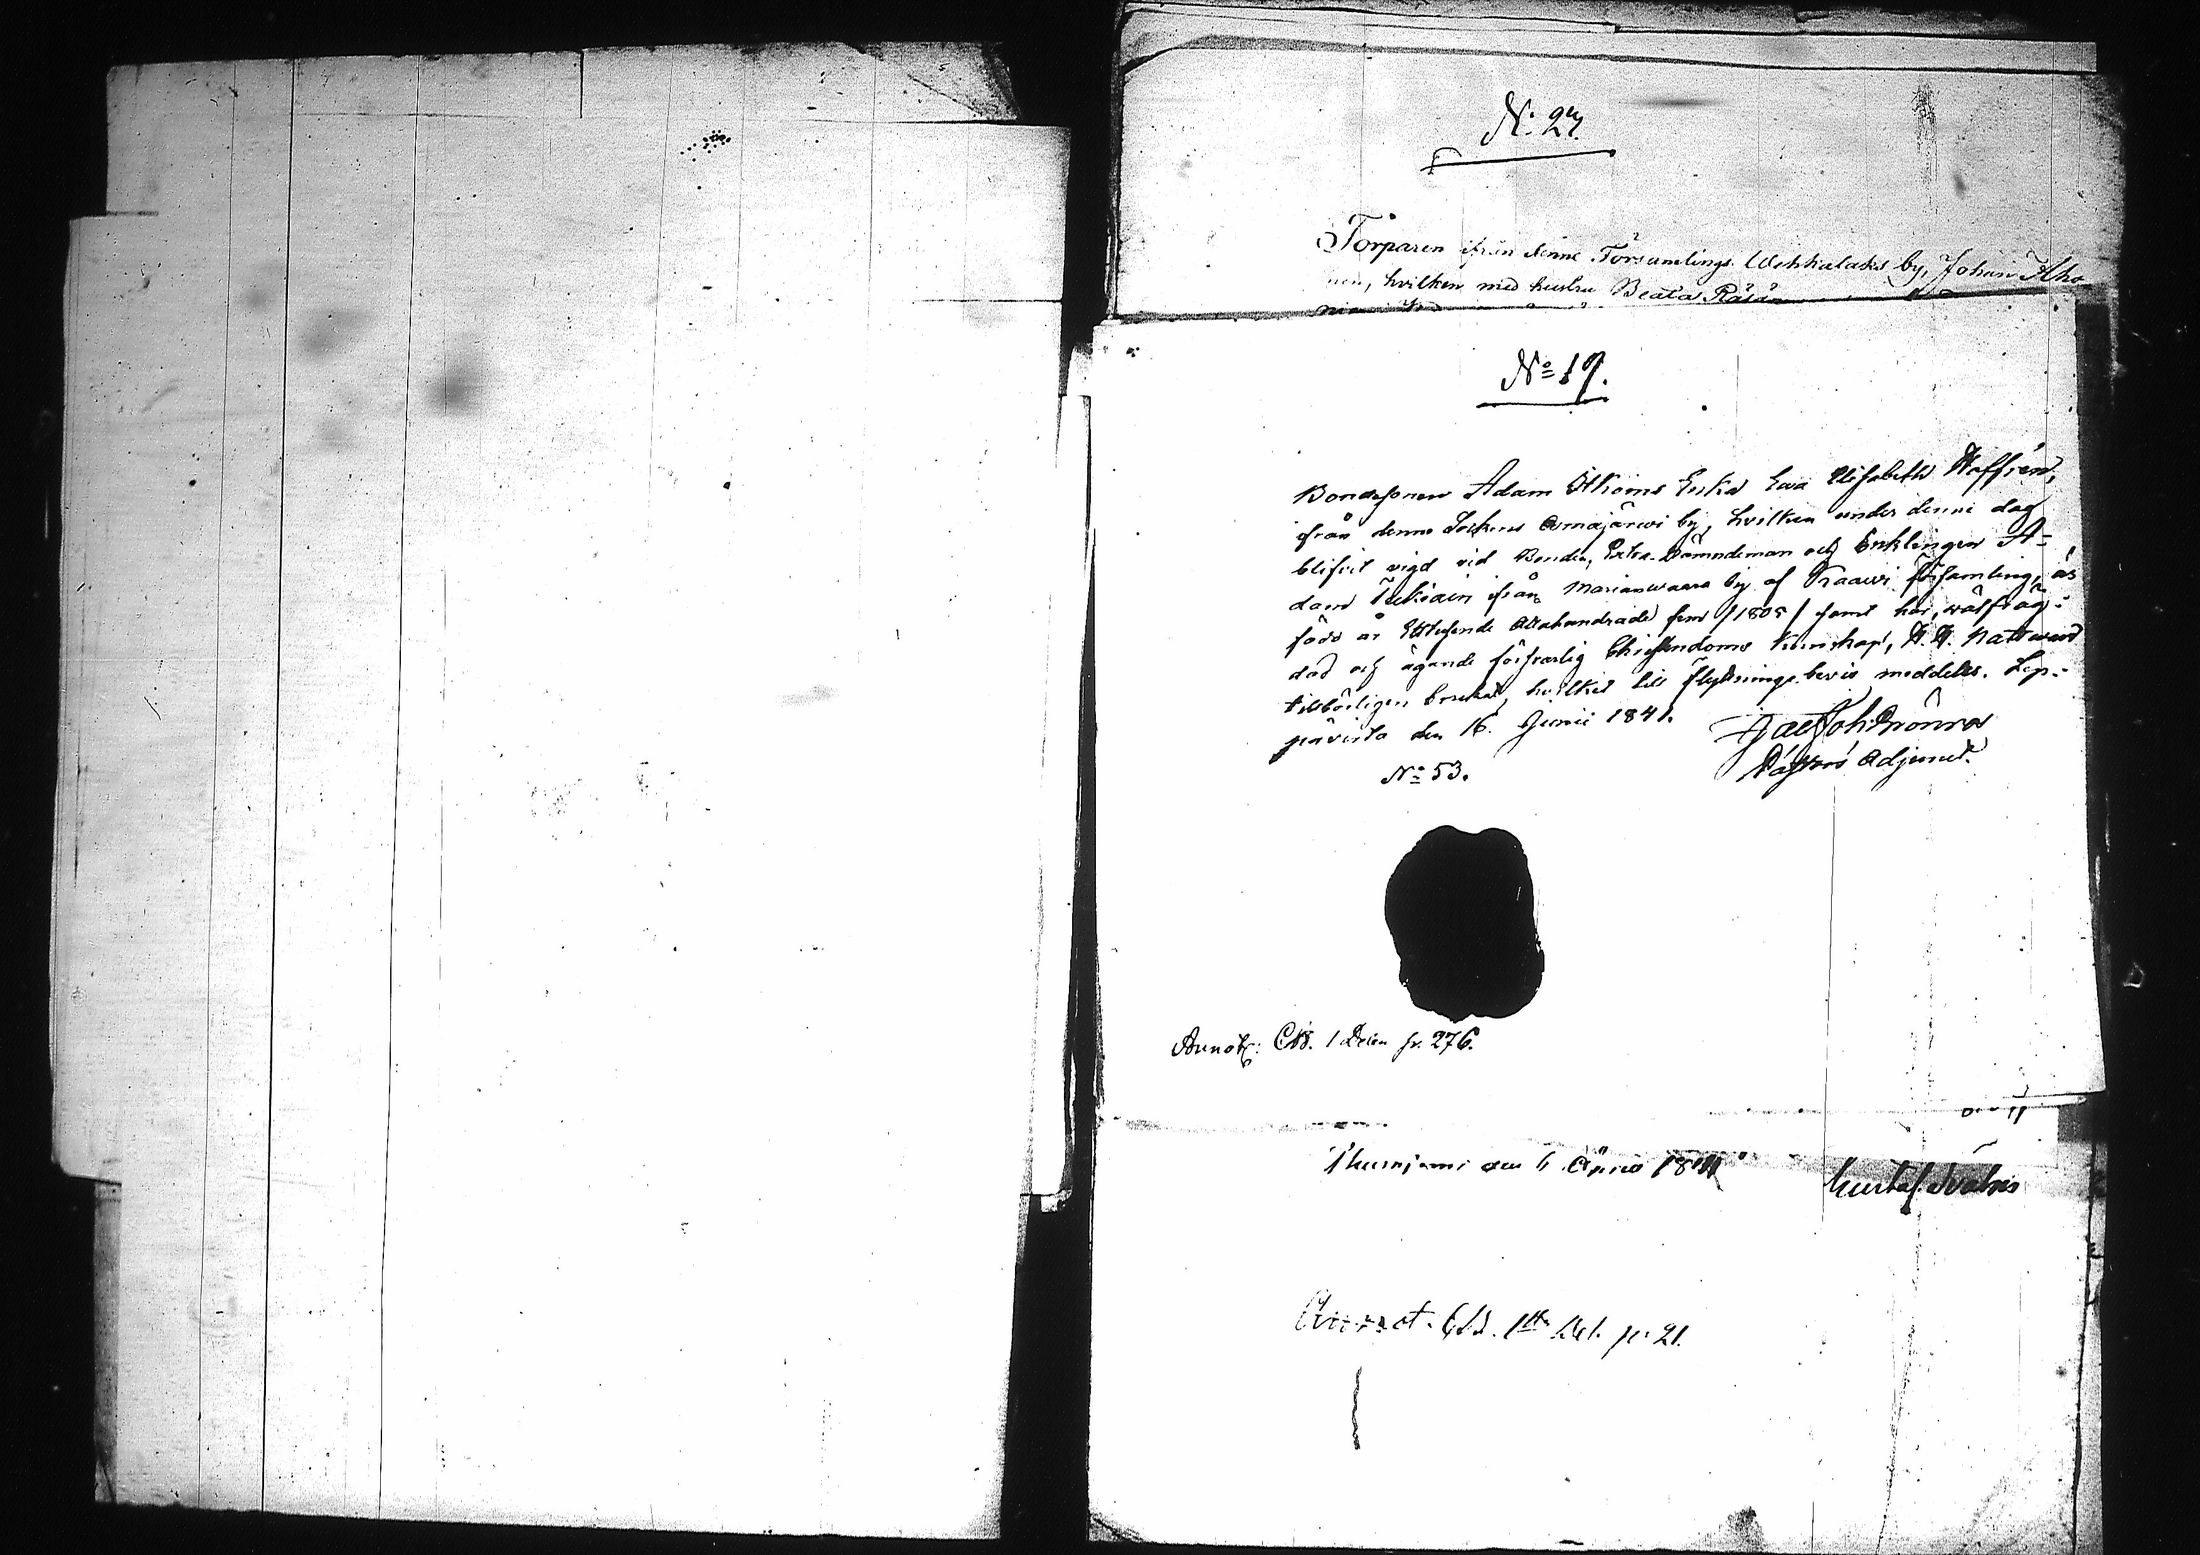 N: 27.
Torparen ifrån denne Församlings Wehkalaks by, Johan Aho
nen, hvilken med hustru Beata Räsä
No 19.
Bondesonen Adam Itkoins Enka Eva Elisabeth Hoffrén,
ifrån denne Sockens Osmajärwi by, hvilken under denne dag
blifvit vigd vid Bonden, Extra-Nämndeman och Enklingen A-
dam Tukiain ifrån Marianwaara by af Kaawi församling, är
född år Ettusende Åttahundrade fem /1805/ samt har, wälfräg-
dad och ägande försvarlig Christendoms kunskap, H. H. Nattward
tillbörligen brukat, hvilket till flyttnings bevis meddelas. Lep-
pävirta den 16. Junii 1841.
Joh. Grönros
Pastors Adjunct.
No 53.
Annot: CB. 1 Delen p. 276.
den 6 1841
Gustaf
Annot. CB. 1sta Del. p. 21.